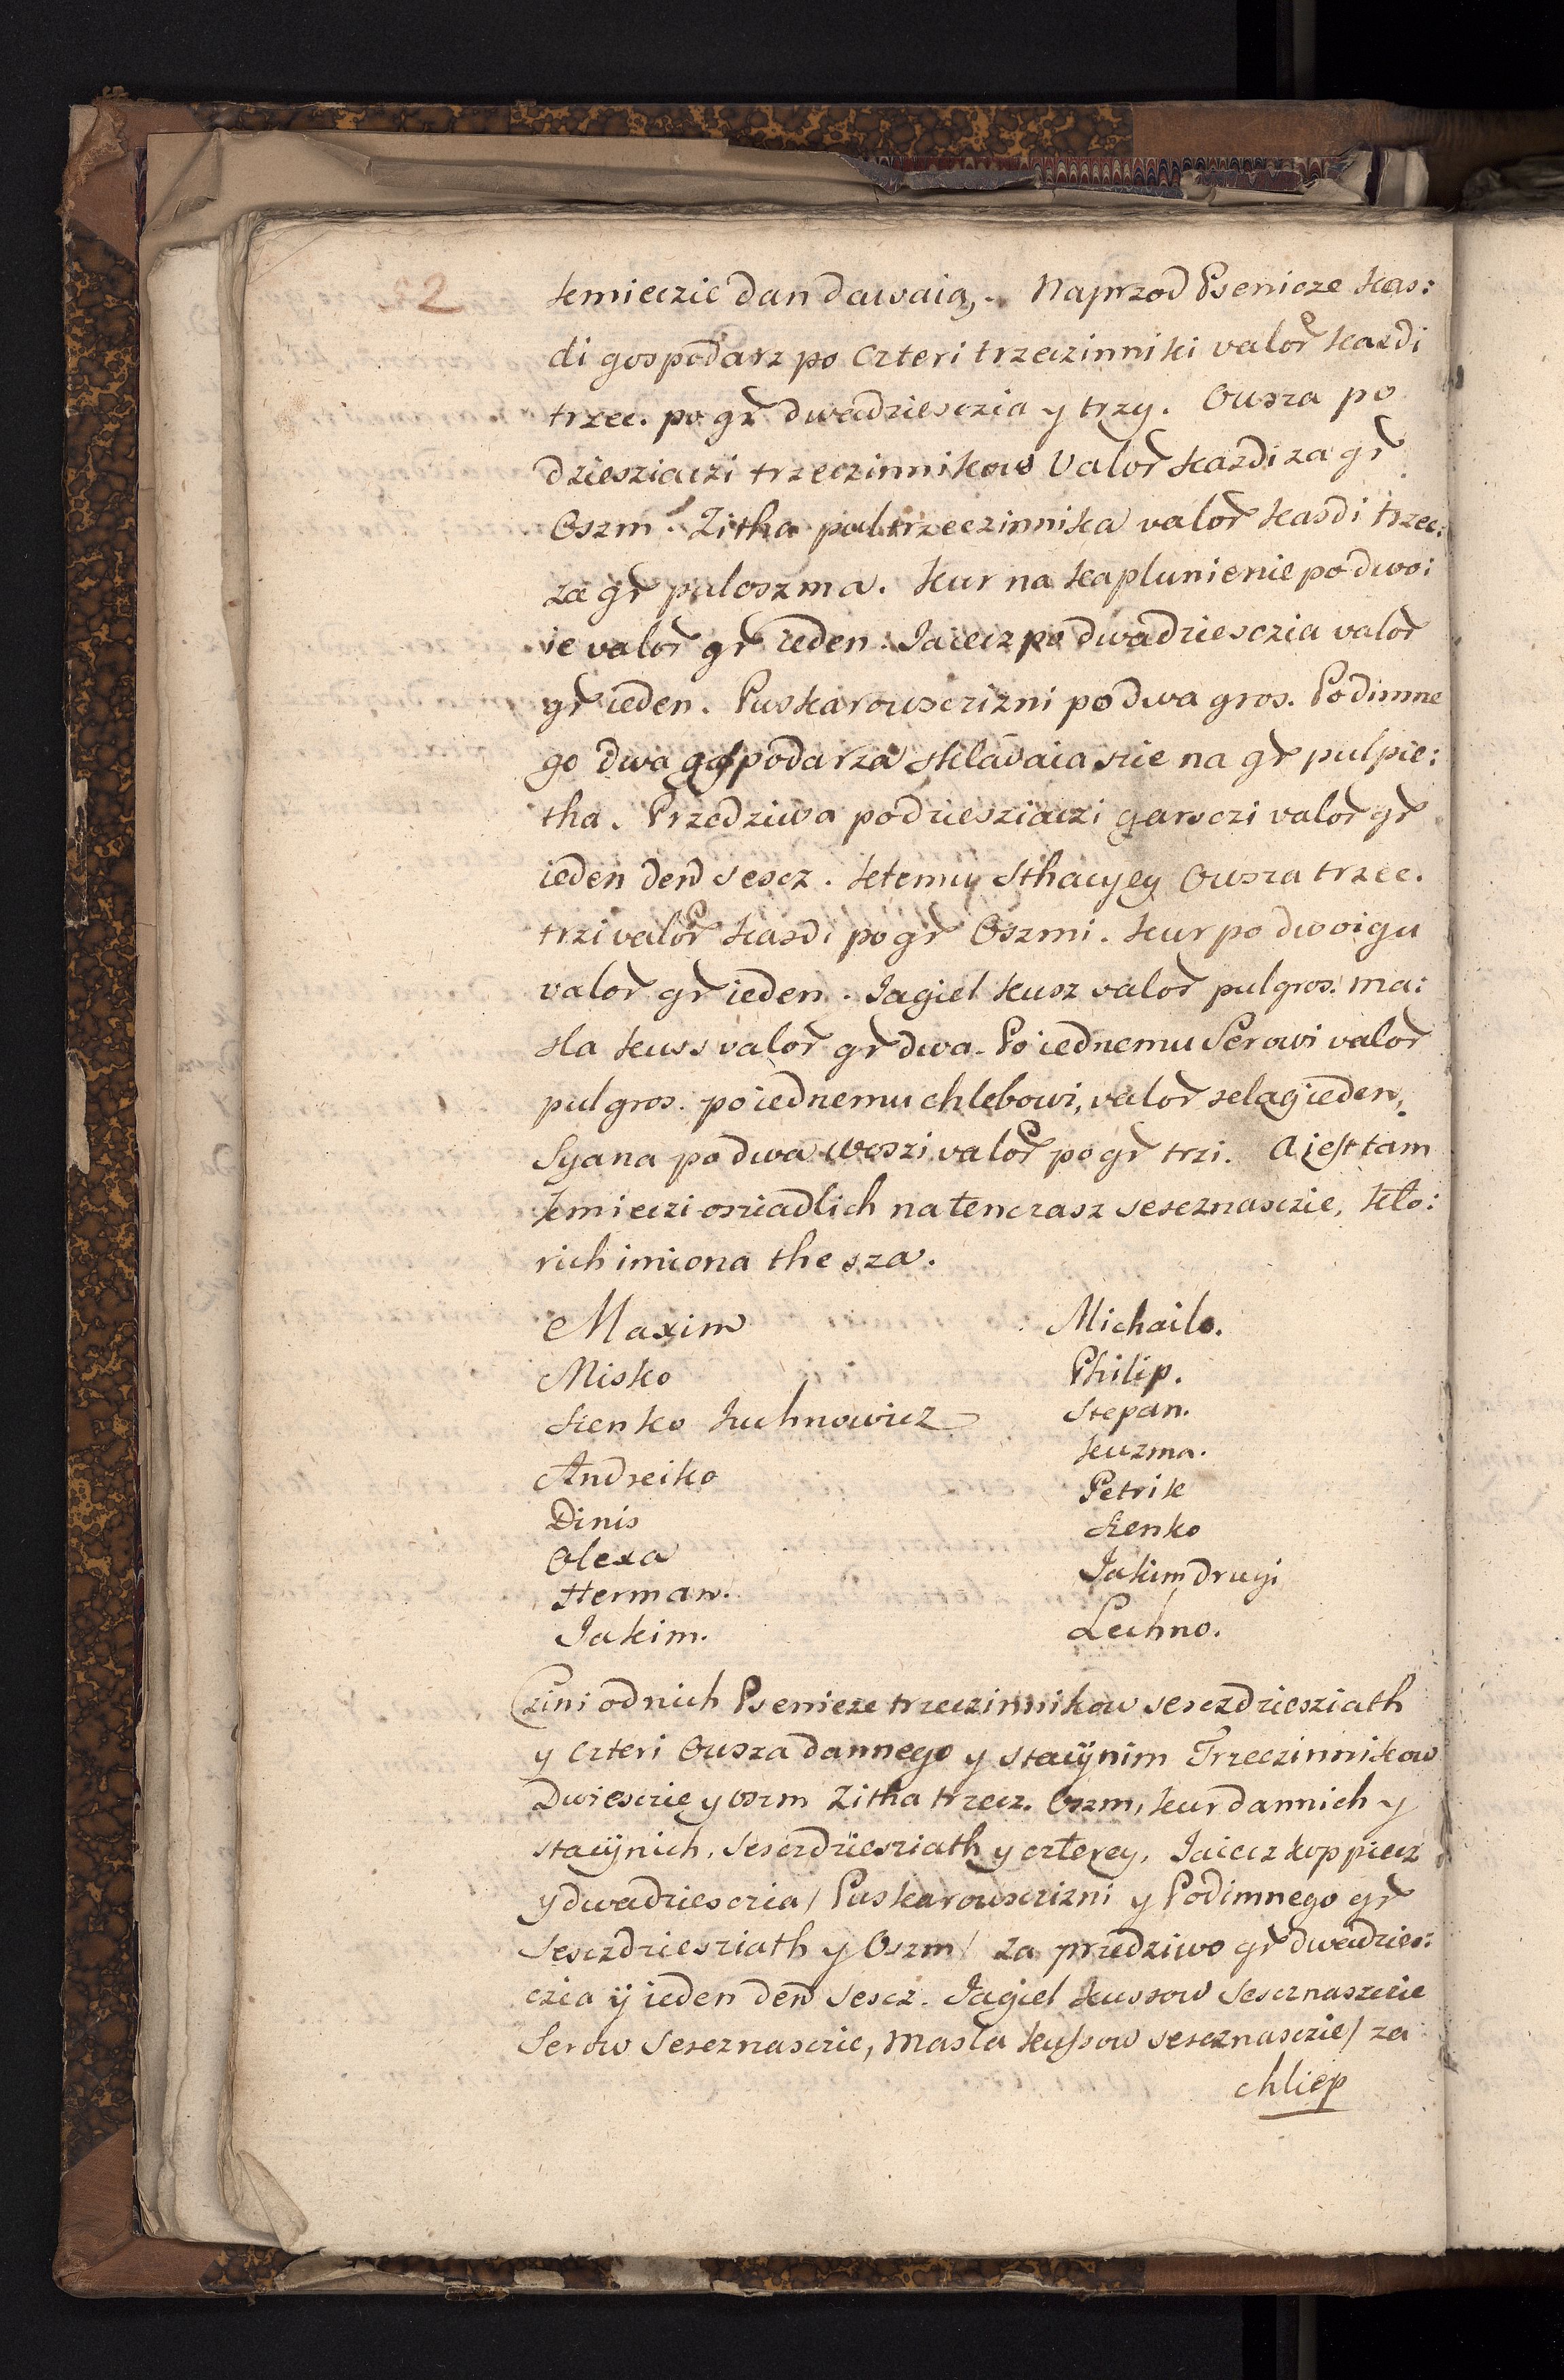 52
kmieczie dan dawaią,. Naprzod Psenicze kas:
di gospodarz po czteri trzeczinniki valor kazdi
trzec. po gr dwadziesczia y trzy. Ousza po
dziesziaczi trzeczinnikow Valor kazdi za gr
Oszm. Zitha pultrzeczinnika valor kasdi trzec:
za gr puloszma. kur na kaplunienie po dwo:
ie valor gr ieden. Jaiecz po dwadziesczia valor
gr ieden. Puskarowsczizni po dwa gros. Podimne
go dwa gospodarza skladaia szie na gr pulpie:
tha. Przedziwa po dziesziaczi garsczi valor gr
ieden den sescz. ktemu Sthacyey Ousza trzec.
trzi valor kasdi po gr Oszmi. kur po dwoigu
valor gr ieden. Jagiel kusz valor pul gros. ma:
sla kuss valor gr dwa. Po iednemu Serowi valor
pul gros. po iednemu chlebowi, valor selag ieden,
Syana po dwa woszi valor po gr trzi. A jest tam
kmieczi osziadlich na tenczasz sescznasczie, kto:
rich imiona the sza.
Maxim
Misko
Sienko Juchnowicz
Andreiko
Dinis
Olexa
Herman.
Jakim.
Michailo.
Philip.
Stepan.
kuzma.
Petrik
Sienko
Jakim drugi
Lechno.
Czini od nich Psenicze trzeczinnikow sesczdziesziath
y czteri Ousza dannego y stacijnim Trzeczinnikow
Dwiesczie y oszm Zitha trzecz. Oszm, kur dannich y
stacijnich, Sesczdziesziath y czterey, Jaiecz kop piecz
y dwadziesczia / Puskarowsczizni y Podimnego gr
Sesczdziesziath y Oszm / za przedziwo gr dwadzies:
czia ij ieden den sescz. Jagiel kussow Sescznasczie
Serow Sescznasczie, Masla kussow sescznasczie / za
chliep